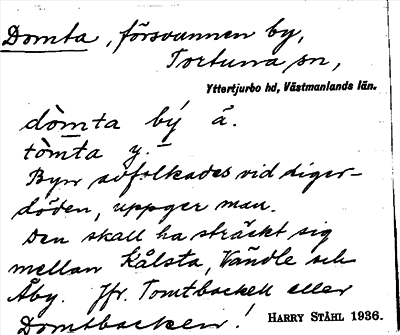 Domta, försvunnen by,
Tortuna sn,
Yttertjurbo hd, Västmanlands län.
dòmta bý ä.
tòmta y. –
Byn avfolkades vid diger-
döden, uppger man.
Den skall ha sträckt sig
mellan Kålsta, Vändle och
Åby. Jfr. Tomtbacken eller
Domtbacken!
HARRY STÅHL 1936.